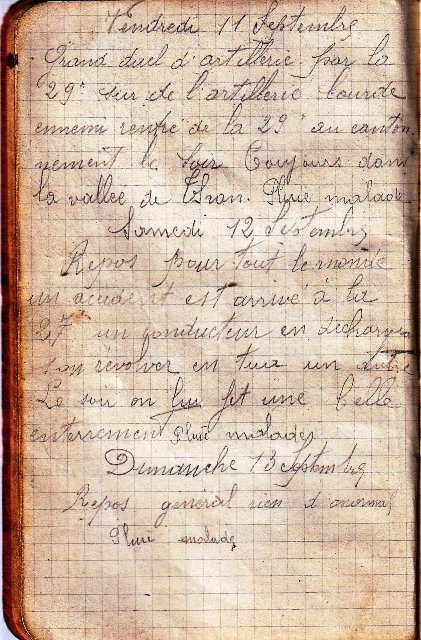 Vendredi 11 Septembre
Grand duel d'artillerie par la
29e sur de l'artillerie lourde
ennemi rentré de la 29e au canton
nement le Soir Toujours dans
la vallée de Thran. Pluie malade
Samedi 12 Septembre
Repos pour tout le monde
un accident est arrivé à la
27 un conducteur en décharg
son révolver en tua un autre
Le soir on lui fit une belle
enterrement Pluie malade
Dimanche 13 Septembre
Repos general rien d'anormal
Pluie malade